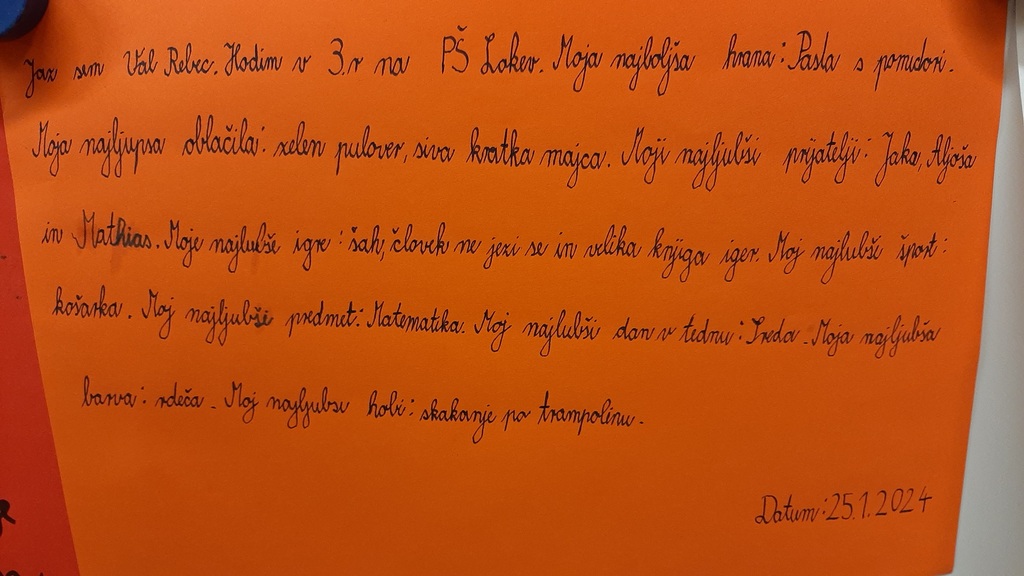 Jaz sem Val Rebec. Hodim v 3.r na PŠ Lokev. Moja najboljša hrana: Pasta s pomidori.
Moja najljupša oblačila: zelen pulover, siva kratka majca. Moji najljubši prijatelji: Jaka, Aljoša
in Mathias. Moje najlubše igre: šah, človek ne jezi se in velika knjiga iger. Moj najlubši šport:
košarka. Moj najljubši predmet: Matematika. Moj najlubši dan v tednu: Sreda. Moja najljubša
barva: rdeča. Moj najljubši hobi: skakanje po trampolinu.
Datum: 25.1.2024